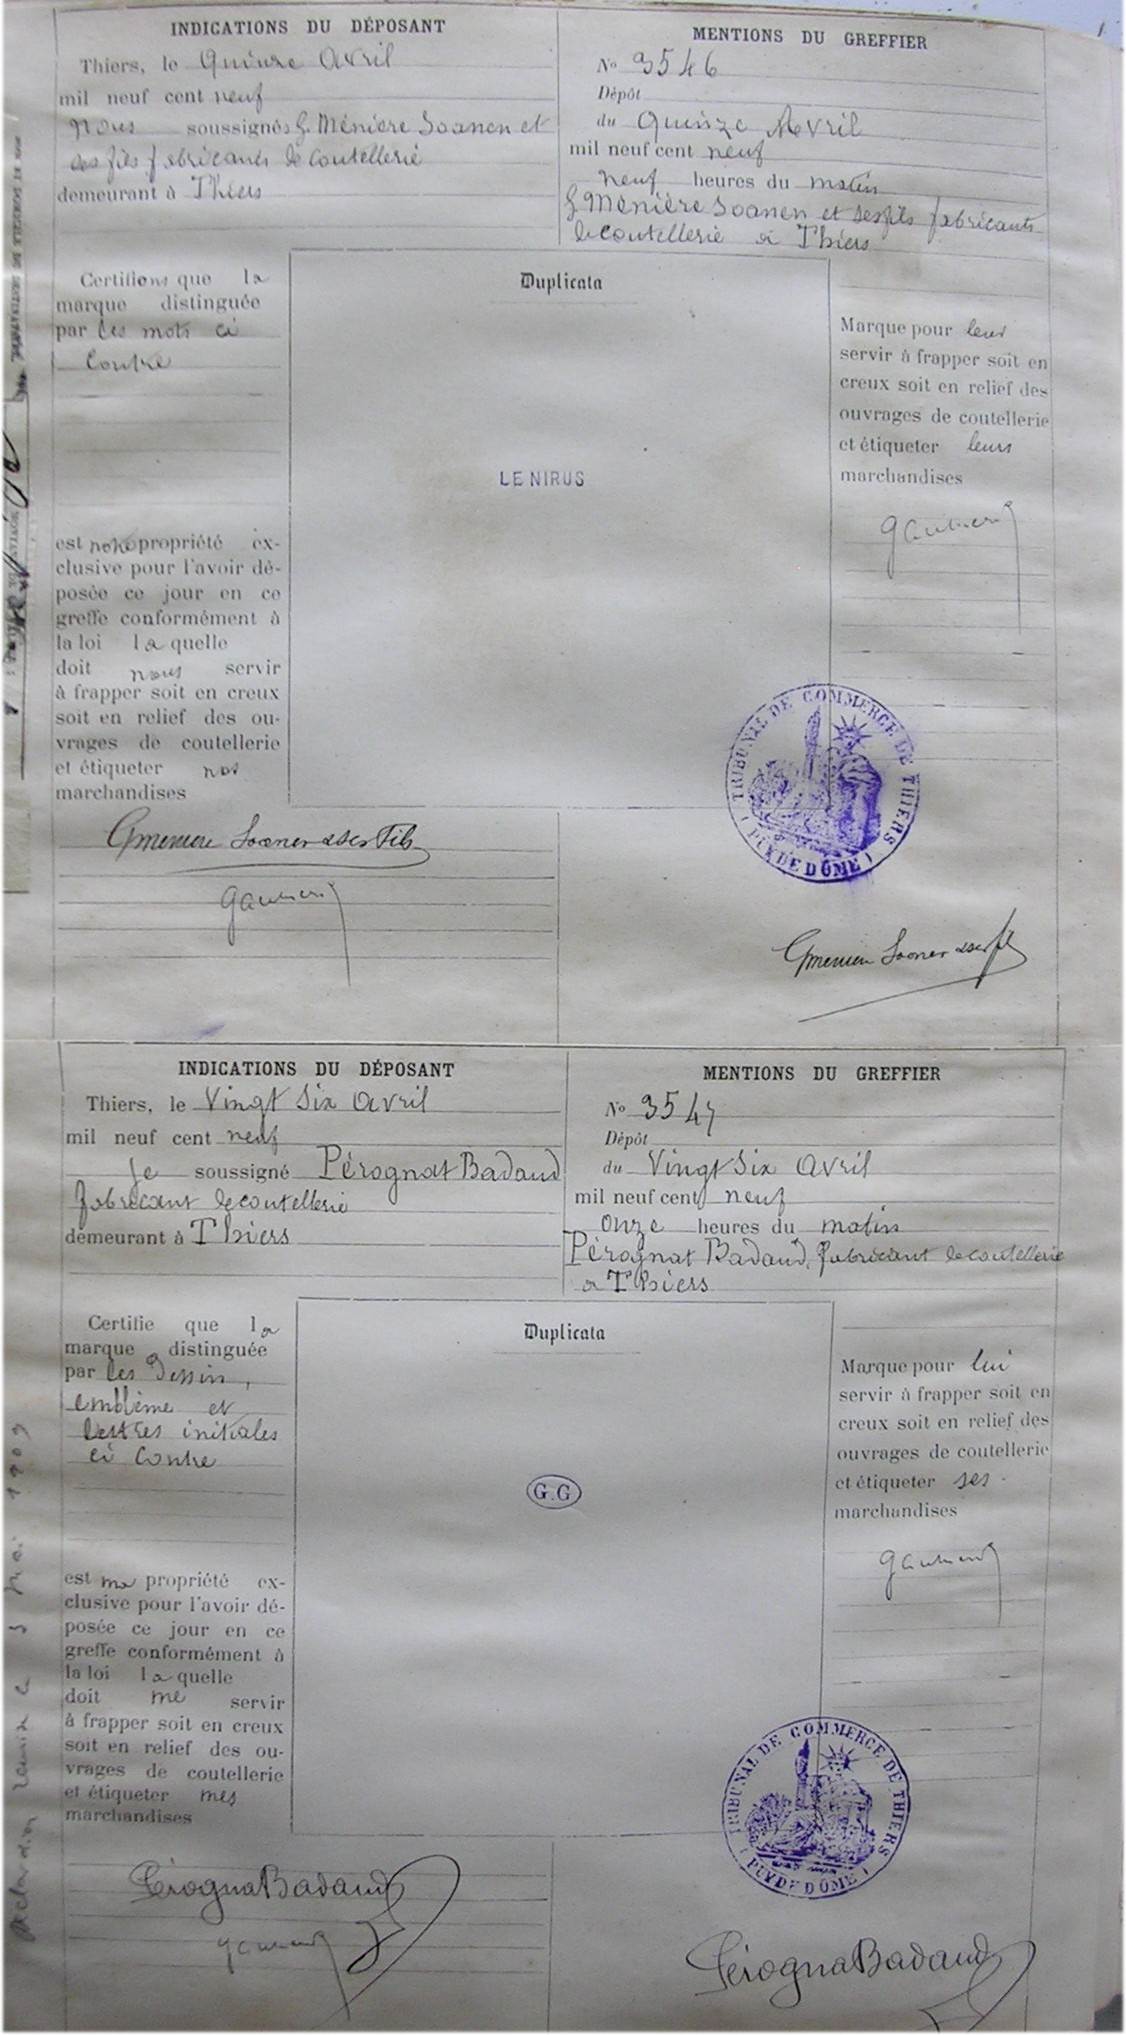 INDICATIONS DU DÉPOSANT
Thiers, le Quinze Avril
mil neuf cent neuf
nous soussignés G. Ménière Soanen et
ses fils fabricants de coutellerie
demeurant à Thiers
MENTIONS DU GREFFIER
No 3546
Dépôt
du Quinze Avril
mil neuf cent neuf
neuf heures du matin
G Ménière Soanen et ses fils fabricants
de coutellerie à Thiers
Certifions que la
marque distinguée
par les mots ci
Contre
est notre propriété ex-
clusive pour l'avoir dé-
posée ce jour en ce
greffe conformément à
la loi la quelle
doit nous servir
à frapper soit en creux
soit en relief des ou-
vrages de coutellerie
et étiqueter nos
marchandises
Duplicata
LE NIRUS
Marque pour leur
servir à frapper soit en
creux soit en relief des
ouvrages de coutellerie
et étiqueter leurs
marchandises
TRIBUNAL DE COMMERCE DE THIERS
(PUY DE DÔME)
GMeniere Soanen & ses Fils
GMeniere Soanen & ses fils
INDICATIONS DU DÉPOSANT
Thiers, le Vingt Six Avril
mil neuf cent neuf
Je soussigné Pérognat Badaud
fabricant de coutellerie
demeurant à Thiers
MENTIONS DU GREFFIER
No 3547
Dépôt
du Vingt Six Avril
mil neuf cent neuf
Onze heures du matin
Pérognat Badaud, fabricant de coutellerie
à Thiers
Certifie que la
marque distinguée
par les Dessin,
emblème et
lettres initiales
ci Contre
est ma propriété ex-
clusive pour l'avoir dé-
posée ce jour en ce
greffe conformément à
la loi la quelle
doit me servir
à frapper soit en creux
soit en relief des ou-
vrages de coutellerie
et étiqueter mes
marchandises
Duplicata
G.G
Marque pour lui
servir à frapper soit en
creux soit en relief des
ouvrages de coutellerie
et étiqueter ses
marchandises
TRIBUNAL DE COMMERCE DE THIERS
(PUY DE DÔME)
PérognaBadaud
PérognaBadaud